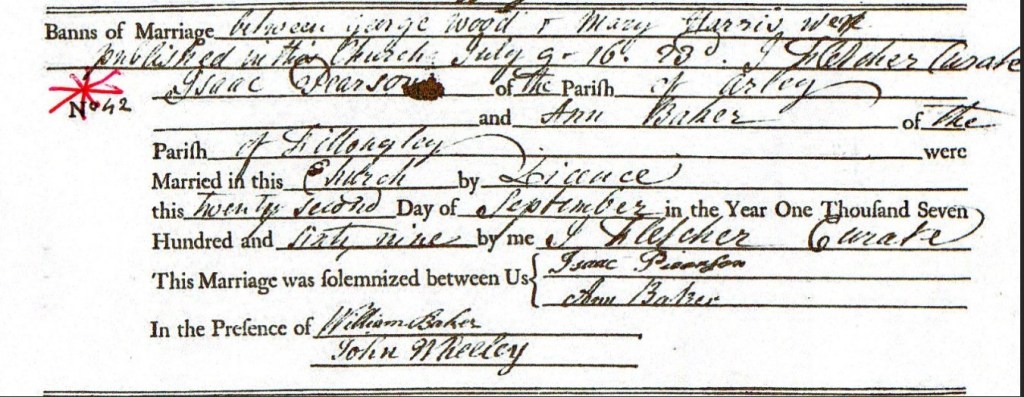 Banns of Marriage between George Wood & Mary Harris were
published in this Church July 9 - 16. 23d. J Fletcher Curate
Isaac Pearson of the Pariſh of Arley
No 42
and Ann Baker of the
Pariſh of Fillongley were
Married in this Church by Licence
this twenty second Day of September in the Year One Thouſand Seven
Hundred and sixty nine by me J Fletcher Curate
This Marriage was ſolemnized between Us { Isaac Pearson
Ann Baker
In the Preſence of William Baker
John Wheeley